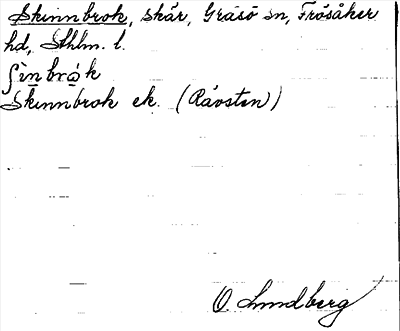 Skinnbrok, skär, Gräsö sn, Frösåker
hd, Sthlm. l.
ʃìnbrå̀k
Skinnbrok ek. (Rävsten)
O. Lundberg